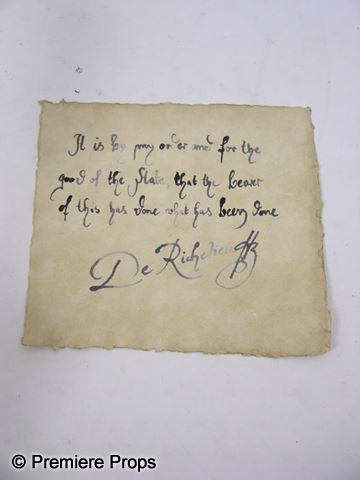 It is by my order and for the
good of the State, that the bearer
of this has done what has been done
De Richelieu
© Premiere Props